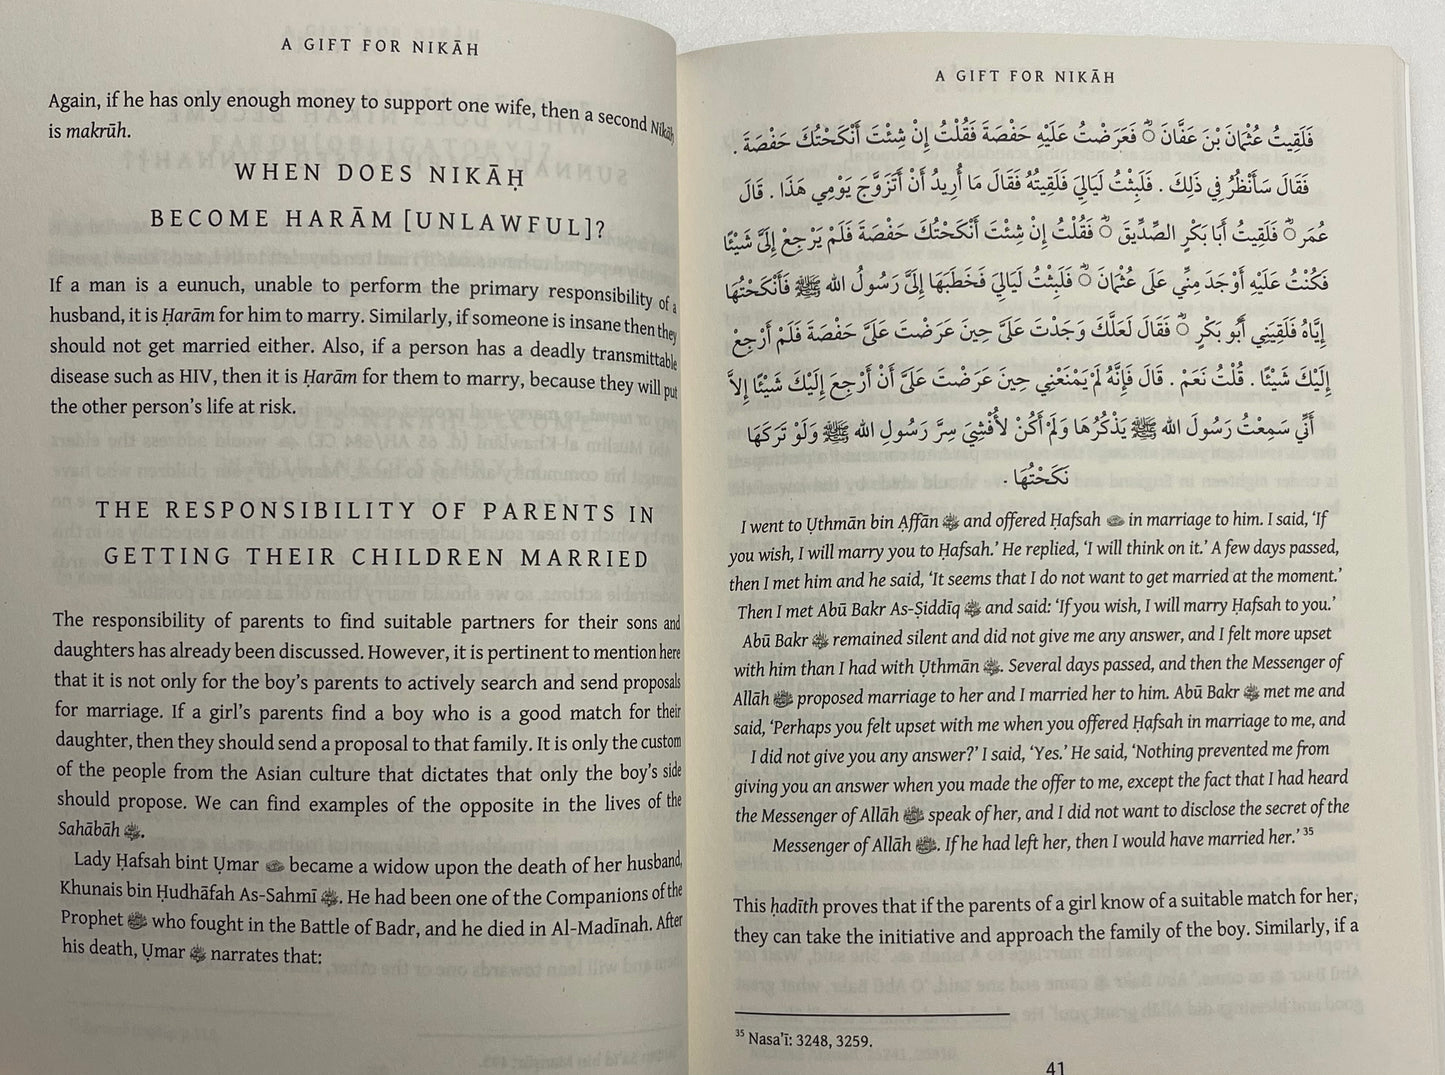 A GIFT FOR NIKĀH
Again, if he has only enough money to support one wife, then a second Nikāḥ
is makrūh.
WHEN DOES NIKĀḤ
BECOME HARĀM [UNLAWFUL]?
If a man is a eunuch, unable to perform the primary responsibility of a
husband, it is Ḥarām for him to marry. Similarly, if someone is insane then they
should not get married either. Also, if a person has a deadly transmittable
disease such as HIV, then it is Ḥarām for them to marry, because they will put
the other person's life at risk.
THE RESPONSIBILITY OF PARENTS IN
GETTING THEIR CHILDREN MARRIED
The responsibility of parents to find suitable partners for their sons and
daughters has already been discussed. However, it is pertinent to mention here
that it is not only for the boy's parents to actively search and send proposals
for marriage. If a girl's parents find a boy who is a good match for their
daughter, then they should send a proposal to that family. It is only the custom
of the people from the Asian culture that dictates that only the boy's side
should propose. We can find examples of the opposite in the lives of the
Sahābāh.
Lady Ḥafsah bint Ụmar became a widow upon the death of her husband,
Khunais bin Ḥudhāfah As-Sahmī. He had been one of the Companions of the
Prophet ﷺ who fought in the Battle of Badr, and he died in Al-Madīnah. After
his death, Ụmar narrates that:
A GIFT FOR NIKĀH
فَلَقِيتُ عُثْمَانَ بْنَ عَفَّانَ فَعَرَضْتُ عَلَيْهِ حَفْصَةَ فَقُلْتُ إِنْ شِئْتَ أَنْكَحْتُكَ حَفْصَةَ .
فَقَالَ سَأَنْظُرُ فِي ذَلِكَ . فَلَبِثْتُ لَيَالِيَ فَلَقِيتُهُ فَقَالَ مَا أُرِيدُ أَنْ أَتَزَوَّجَ يَوْمِي هَذَا . قَالَ
عُمَر فَلَقِيتُ أَبَا بَكْرٍ الصِّدِّيقَ فَقُلْتُ إِنْ شِئْتَ أَنْكَحْتُكَ حَفْصَةَ فَلَمْ يَرْجِعْ إِلَيَّ شَيْئًا
فَكُنْتُ عَلَيْهِ أَوْجَدَ مِنِّي عَلَى عُثْمَانَ فَلَبِثْتُ لَيَالِيَ فَخَطَبَهَا إِلَيَّ رَسُولُ الله ﷺ فَأَنْكَحْتُهَا
إِيَّاهُ فَلَقِيَنِي أَبُو بَكْرٍ فَقَالَ لَعَلَّكَ وَجَدْتَ عَلَيَّ حِينَ عَرَضْتَ عَلَيَّ حَفْصَةَ فَلَمْ أَرْجِعْ
إِلَيْكَ شَيْئًا . قُلْتُ نَعَمْ . قَالَ فَإِنَّهُ لَمْ يَمْنَعْنِي حِينَ عَرَضْتَ عَلَيَّ أَنْ أَرْجِعَ إِلَيْكَ شَيْئًا إِلاَّ
أَنِّي سَمِعْتُ رَسُولَ الله ﷺ يَذْكُرُهَا وَلَمْ أَكُنْ لأُفْشِيَ سِرَّ رَسُولِ الله ﷺ وَلَوْ تَرَكَهَا
نَكَحْتُهَا .
I went to Ụthmān bin Ạffān and offered Ḥafsah in marriage to him. I said, 'If
you wish, I will marry you to Ḥafsah.' He replied, 'I will think on it.' A few days passed,
then I met him and he said, 'It seems that I do not want to get married at the moment.'
Then I met Abū Bakr As-Ṣiddīq and said: 'If you wish, I will marry Ḥafsah to you.'
Abū Bakr remained silent and did not give me any answer, and I felt more upset
with him than I had with Ụthmān. Several days passed, and then the Messenger of
Allāh ﷺ proposed marriage to her and I married her to him. Abū Bakr met me and
said, 'Perhaps you felt upset with me when you offered Ḥafsah in marriage to me, and
I did not give you any answer?' I said, 'Yes.' He said, 'Nothing prevented me from
giving you an answer when you made the offer to me, except the fact that I had heard
the Messenger of Allāh ﷺ speak of her, and I did not want to disclose the secret of the
Messenger of Allāh ﷺ. If he had left her, then I would have married her.' 35
This ḥadīth proves that if the parents of a girl know of a suitable match for her,
they can take the initiative and approach the family of the boy. Similarly, if a
35 Nasa'ī: 3248, 3259.
41